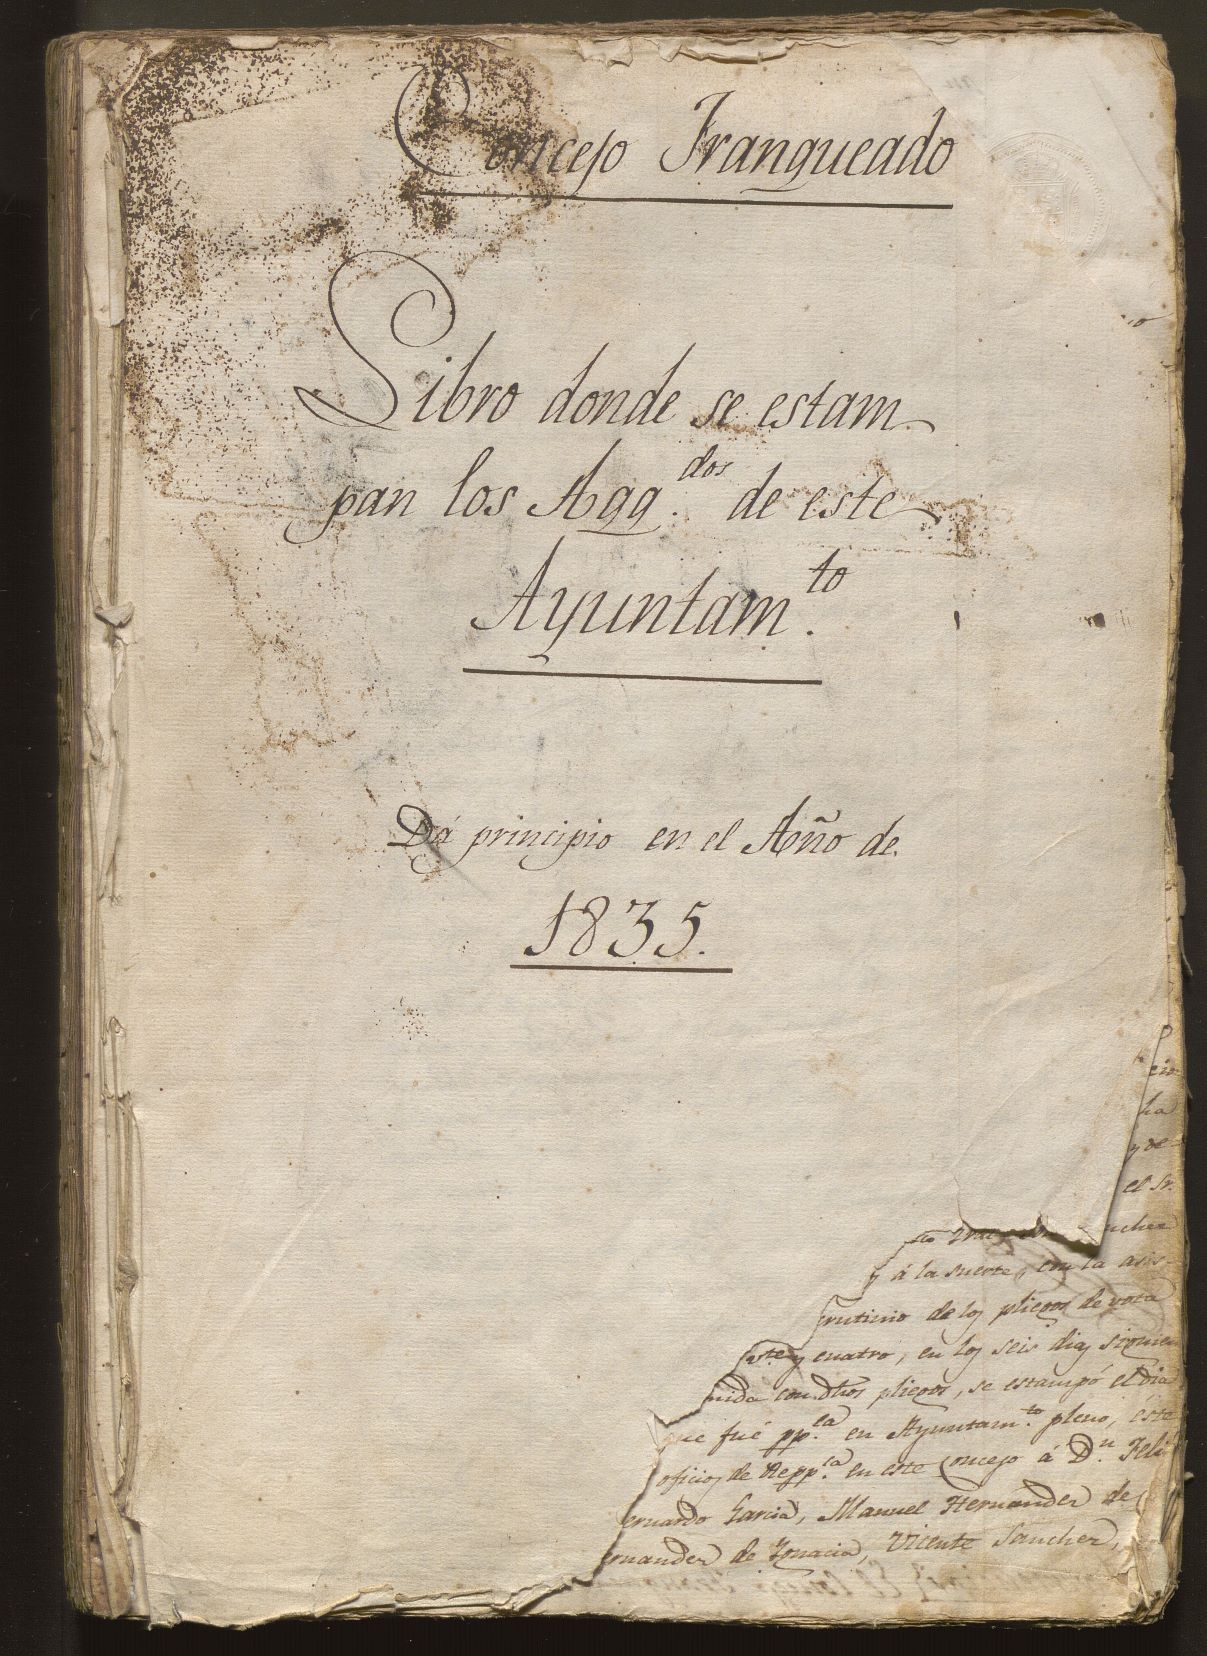 Concejo Franqueado
Libro donde se estam
pan los Aqq.dos de este
Ayuntam.to
Dá principio en el Año de
1835.
cio
ha
y de=
el Sr.
nchez
y á la suerte, con la asis-
rutinio de los pliegos de vota
vte y cuatro, en los seis dias siguien
nida con dhos pliegos, se estampó el dia
que fué pp.ca en Ayuntam.to pleno, este
oficios de Repp.ca en este Concejo á D.n Feli
ernardo Garcia, Manuel Hernandez de
ernandez de Ygnacia, Vicente Sanchez,